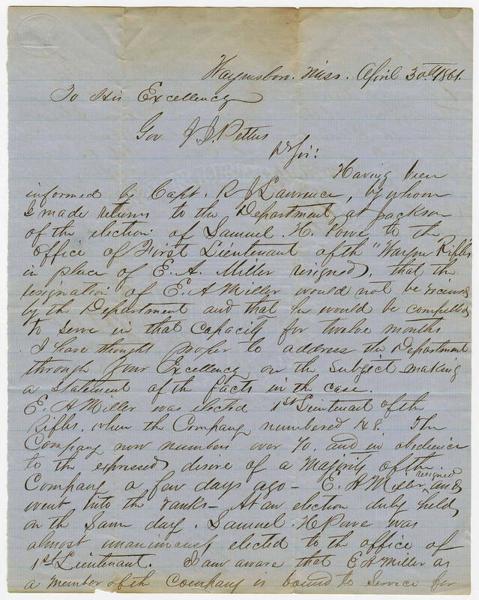 Waynesboro. Miss. April 30th 1861.
To His Excellency
Gov J. J. Pettus
Dr Sir:
Having been
informed by Capt. R J Lawrence, by whom
I made returns to the Department at Jackson
of the election of Samuel H. Powe to the
Office of First Lieutenant of the "Wayne Rifles
in place of E. A. Miller resigned, that the
resignation of E. A Miller would not be received
by the Department and that he would be compelled
to serve in that capacity for twelve months
I have thought proper to address the Department
through your Excellency on the subject making
a statement of the facts in the case.
E. A Miller was elected 1st Lieutenant of the
Rifles, when the Company numbered 48. The
Company now numbers over 70. and in obedience
to the expressed desire of a Majority of the
Company a few days ago - E. A Miller resigned and
went into the ranks - At an election duly held
on the same day. Samuel H Powe was
almost unanimously elected to the office of
1st Lieutenant. I am aware that E A Miller as
a member of the Company is bound to service for